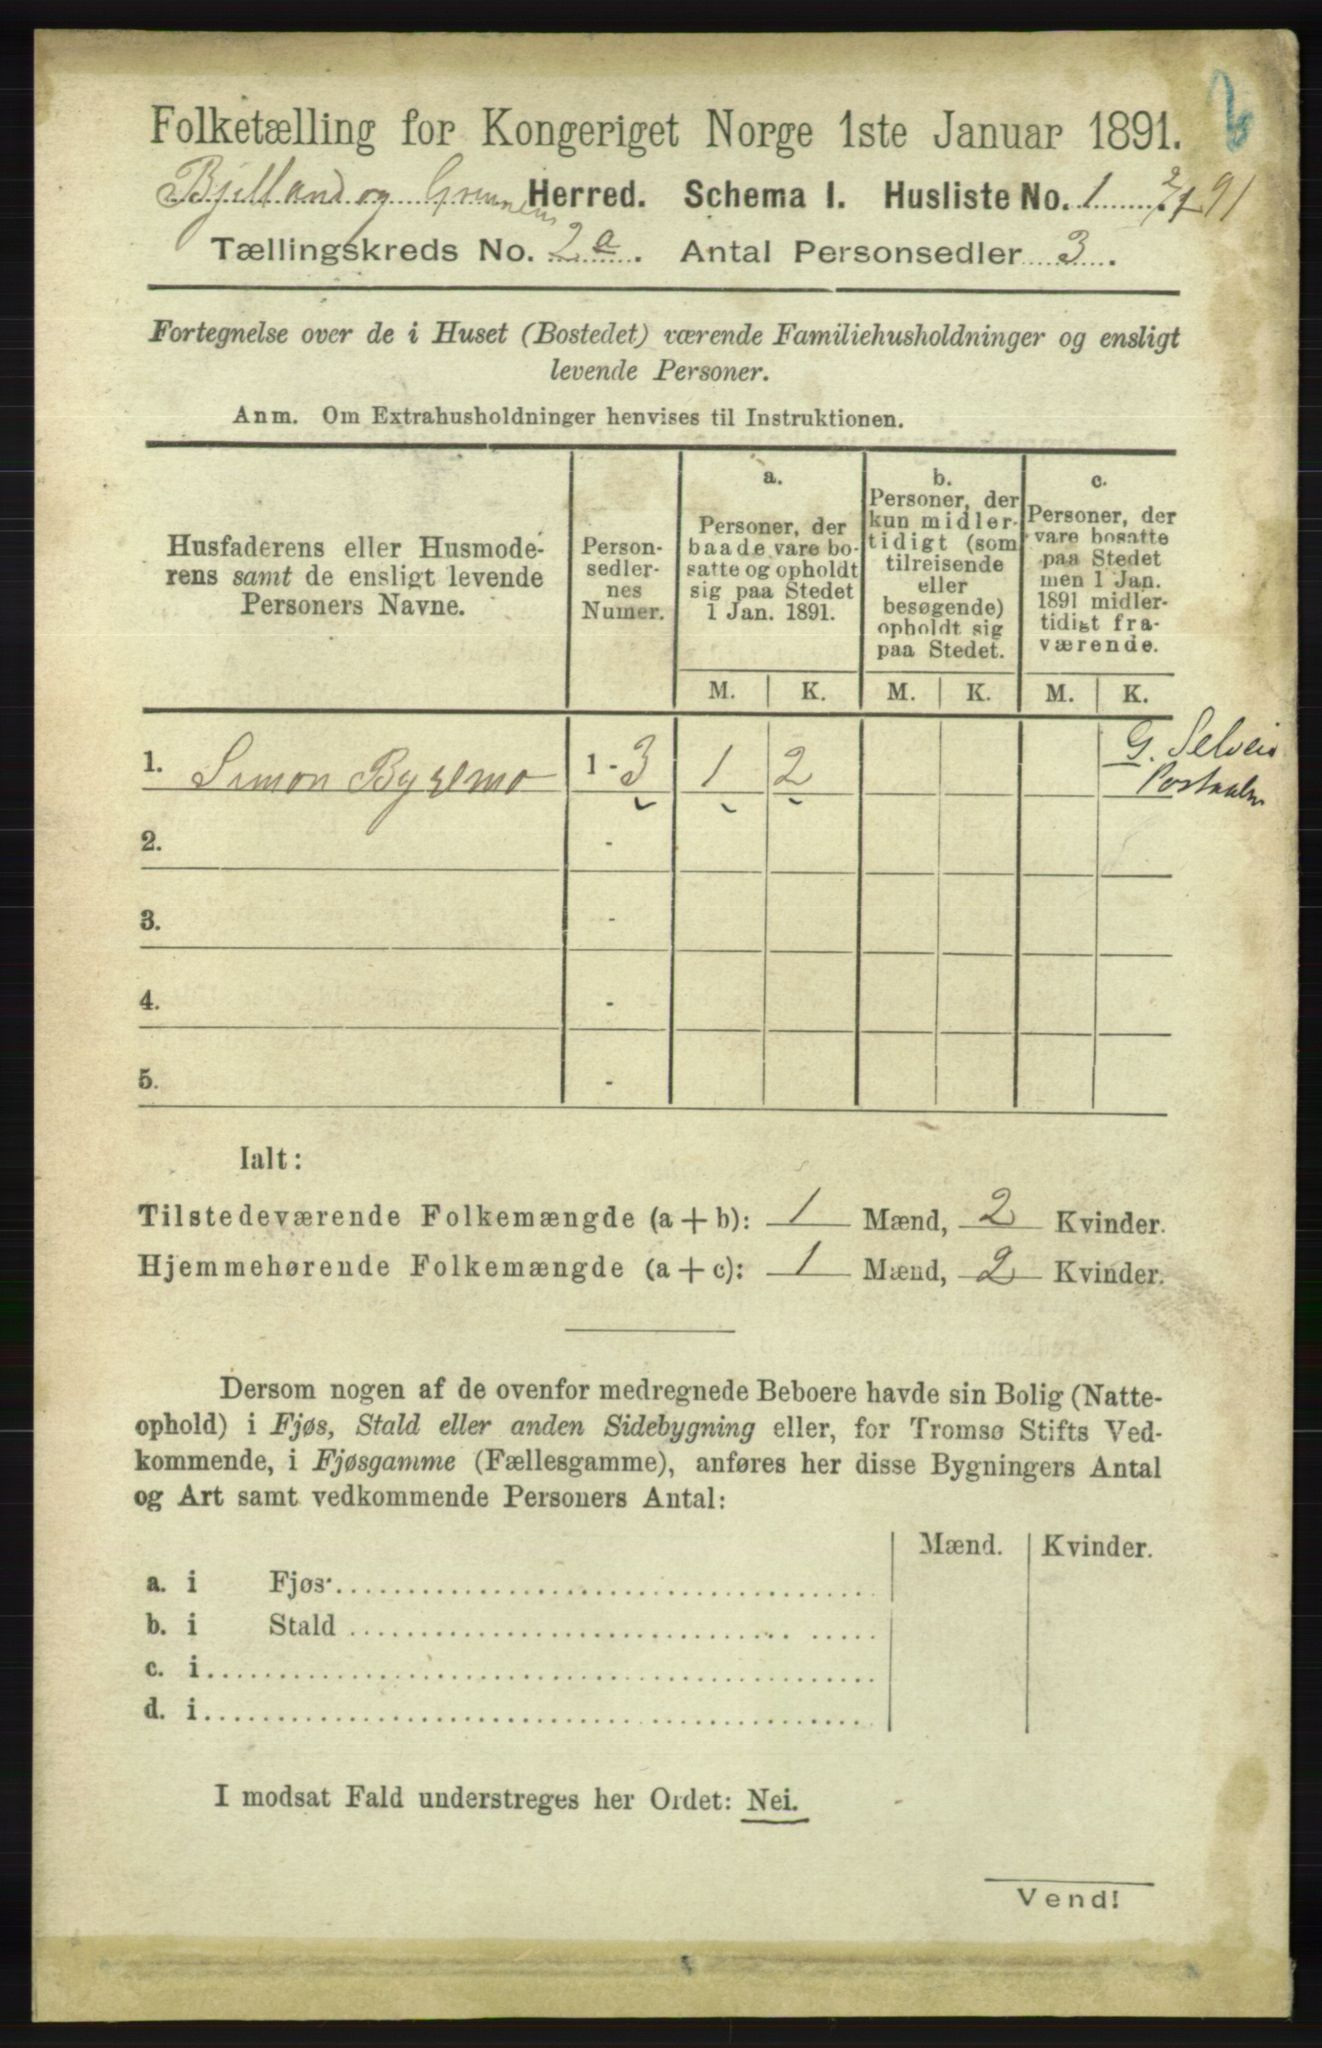 Folketælling for Kongeriget Norge 1ste Januar 1891.
Bjelland og Grinnem Herred. Schema I. Husliste No. 1 2/1 91
Tællingskreds No. 2a. Antal Personsedler 3.
Fortegnelse over de i Huset (Bostedet) værende Familiehusholdninger og ensligt
levende Personer.
Anm. Om Extrahusholdninger henvises til Instruktionen.
Husfaderens eller Husmode-
rens samt de ensligt levende
Personers Navne.
Person-
sedler-
nes
Numer.
a.
Personer, der
baade vare bo-
satte og opholdt
sig paa Stedet
1 Jan. 1891.
b.
Personer, der
kun midler-
tidigt (som
tilreisende
eller
besøgende)
opholdt sig
paa Stedet.
c.
Personer, der
vare bosatte
paa Stedet
men 1 Jan.
1891 midler-
tidigt fra-
værende.
M. K. M. K. M. K.
1. Simon Byremo 1 - 3 1 2
G. Selveier
2. -
3. -
4. -
5. -
Ialt:
Tilstedeværende Folkemængde (a + b): 1 Mænd, 2 Kvinder.
Hjemmehørende Folkemængde (a + c): 1 Mænd, 2 Kvinder.
Dersom nogen af de ovenfor medregnede Beboere havde sin Bolig (Natte-
ophold) i Fjøs, Stald eller anden Sidebygning eller, for Tromsø Stifts Ved-
kommende, i Fjøsgamme (Fællesgamme), anføres her disse Bygningers Antal
og Art samt vedkommende Personers Antal:
Mænd. Kvinder.
a. i Fjøs
b. i Stald
c. i
d. i
I modsat Fald understreges her Ordet: Nei.
Vend!